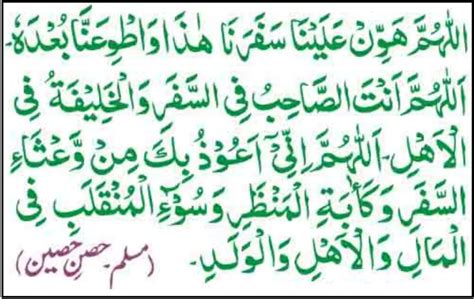 اَللّٰهُمَّ هَوِّنْ عَلَيْنَا سَفَرَنَا هٰذَا وَاطْوِعَنَّا بُعْدَهٗ۔
اَللّٰهُمَّ اَنْتَ الصَّاحِبُ فِی السَّفَرِ وَالْخَلِيْفَةُ فِی
الْاَهْلِ۔ اَللّٰهُمَّ اِنِّیْ اَعُوْذُ بِكَ مِنْ وَّعْثَاءِ
السَّفَرِ وَكَاٰبَةِ الْمَنْظَرِ وَسُوْٓءِ الْمُنْقَلَبِ فِی
الْمَالِ وَالْاَهْلِ وَالْوَلَدِ۔ (مسلم۔ حصنِ حصین)